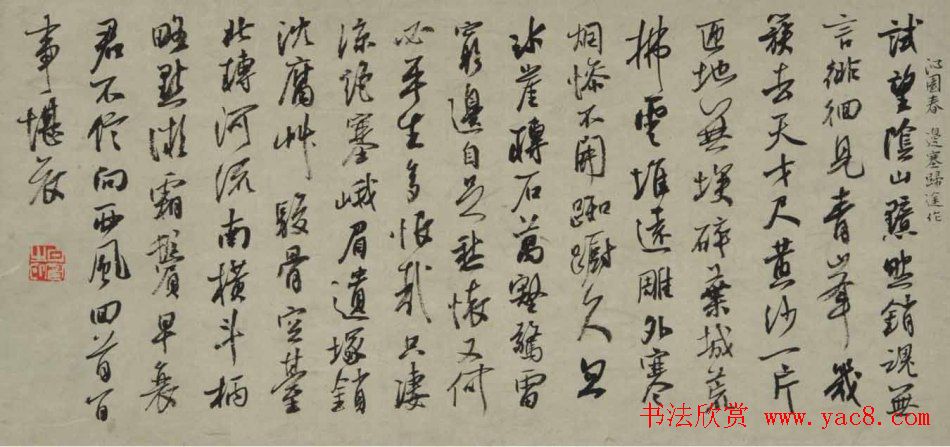 沁園春 邊塞歸途作
試望陰山黯然銷魂無
言徘徊見青峯幾
簇去天才尺黃沙一片
匝地無埃碎葉城荒
拂雲堆遠雕外寒
烟慘不開踟躕久忽
冰崖轉石萬壑驚雷
窮邊自足愁懷又何
必平生多恨哉只淒
涼絕塞峨眉遺塚銷
沈腐艸駿骨空臺
北轉河流南橫斗柄
略點微霜鬢早衰
君不信向西風回首百
事堪哀
书法欣赏 www.yac8.com